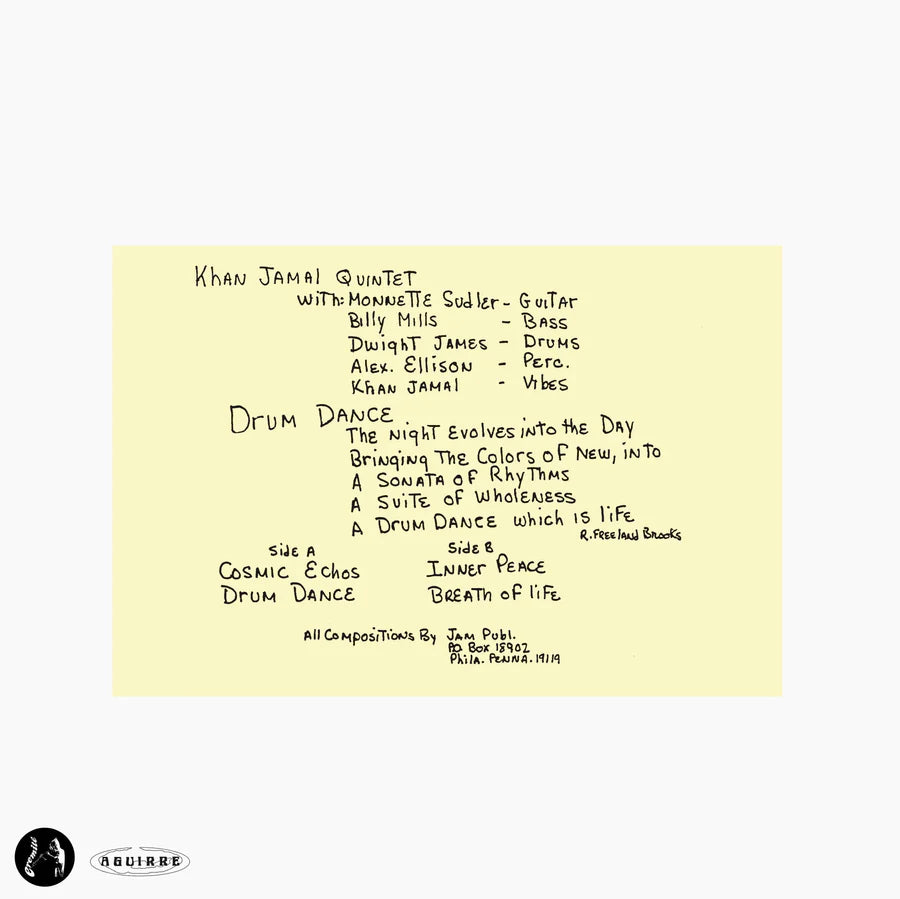 Khan Jamal Quintet
with: Monnette Sudler - Guitar
Billy Mills - Bass
Dwight James - Drums
Alex. Ellison - Perc.
Khan Jamal - Vibes
Drum Dance
The night Evolves into the Day
Bringing The Colors of New, into
A Sonata of Rhythms
A Suite of Wholeness
A Drum Dance which is life
R. Freeland Brooks
Side A Side B
Cosmic Echos Inner Peace
Drum Dance Breath of life
All Compositions By Jam Publ.
P.O. Box 18902
Phila. Penna. 19119
Eremite AGUIRRE